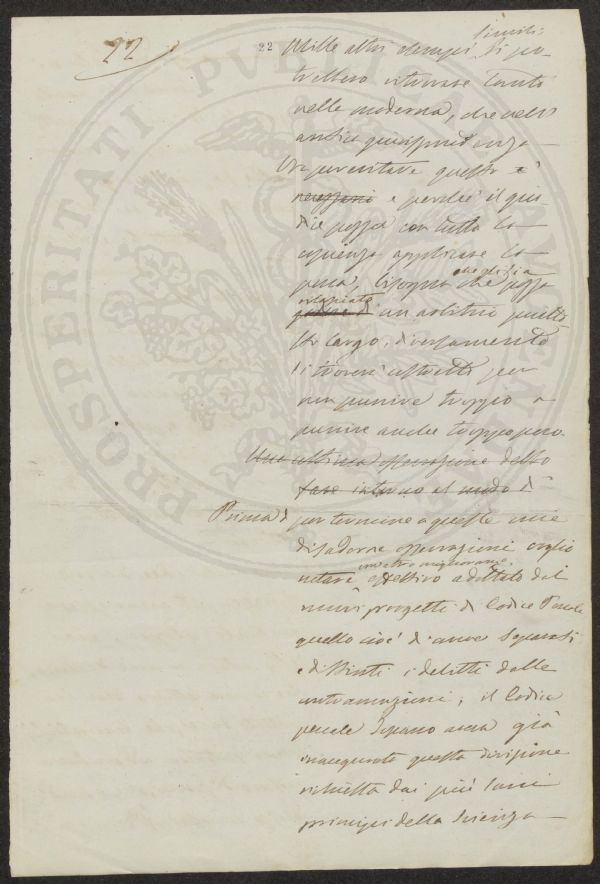 22
22 Mille altri esempi simili si po-
trebbero ritrovare tanto
nelle moderna, che nell'
antica giurisprudenza —
Per evitare questo è
necessario e perché il giu-
dice possa con tutta co-
scienza applicare la
pena, bisogna che gli sia
rilasciato
un arbitrio piuttos-
to largo, diversamente
si troverà costretto per
non punire troppo a
punire anche troppo poco.
Una ultima osservazione debbo
fare intorno al modo di
Prima di por termine a queste mie
disadorne osservazioni voglio
notare adottato dal
nuovi progetti di Codice Penale
quello cioè d'aver separati
e distinti i delitti dalle
contravvenzioni; il Codice
penale Toscano aveva già
inaugurata questa divisione
richiesta dai più sani
principj della Scienza —
PROSPERITATI PUBLICAE